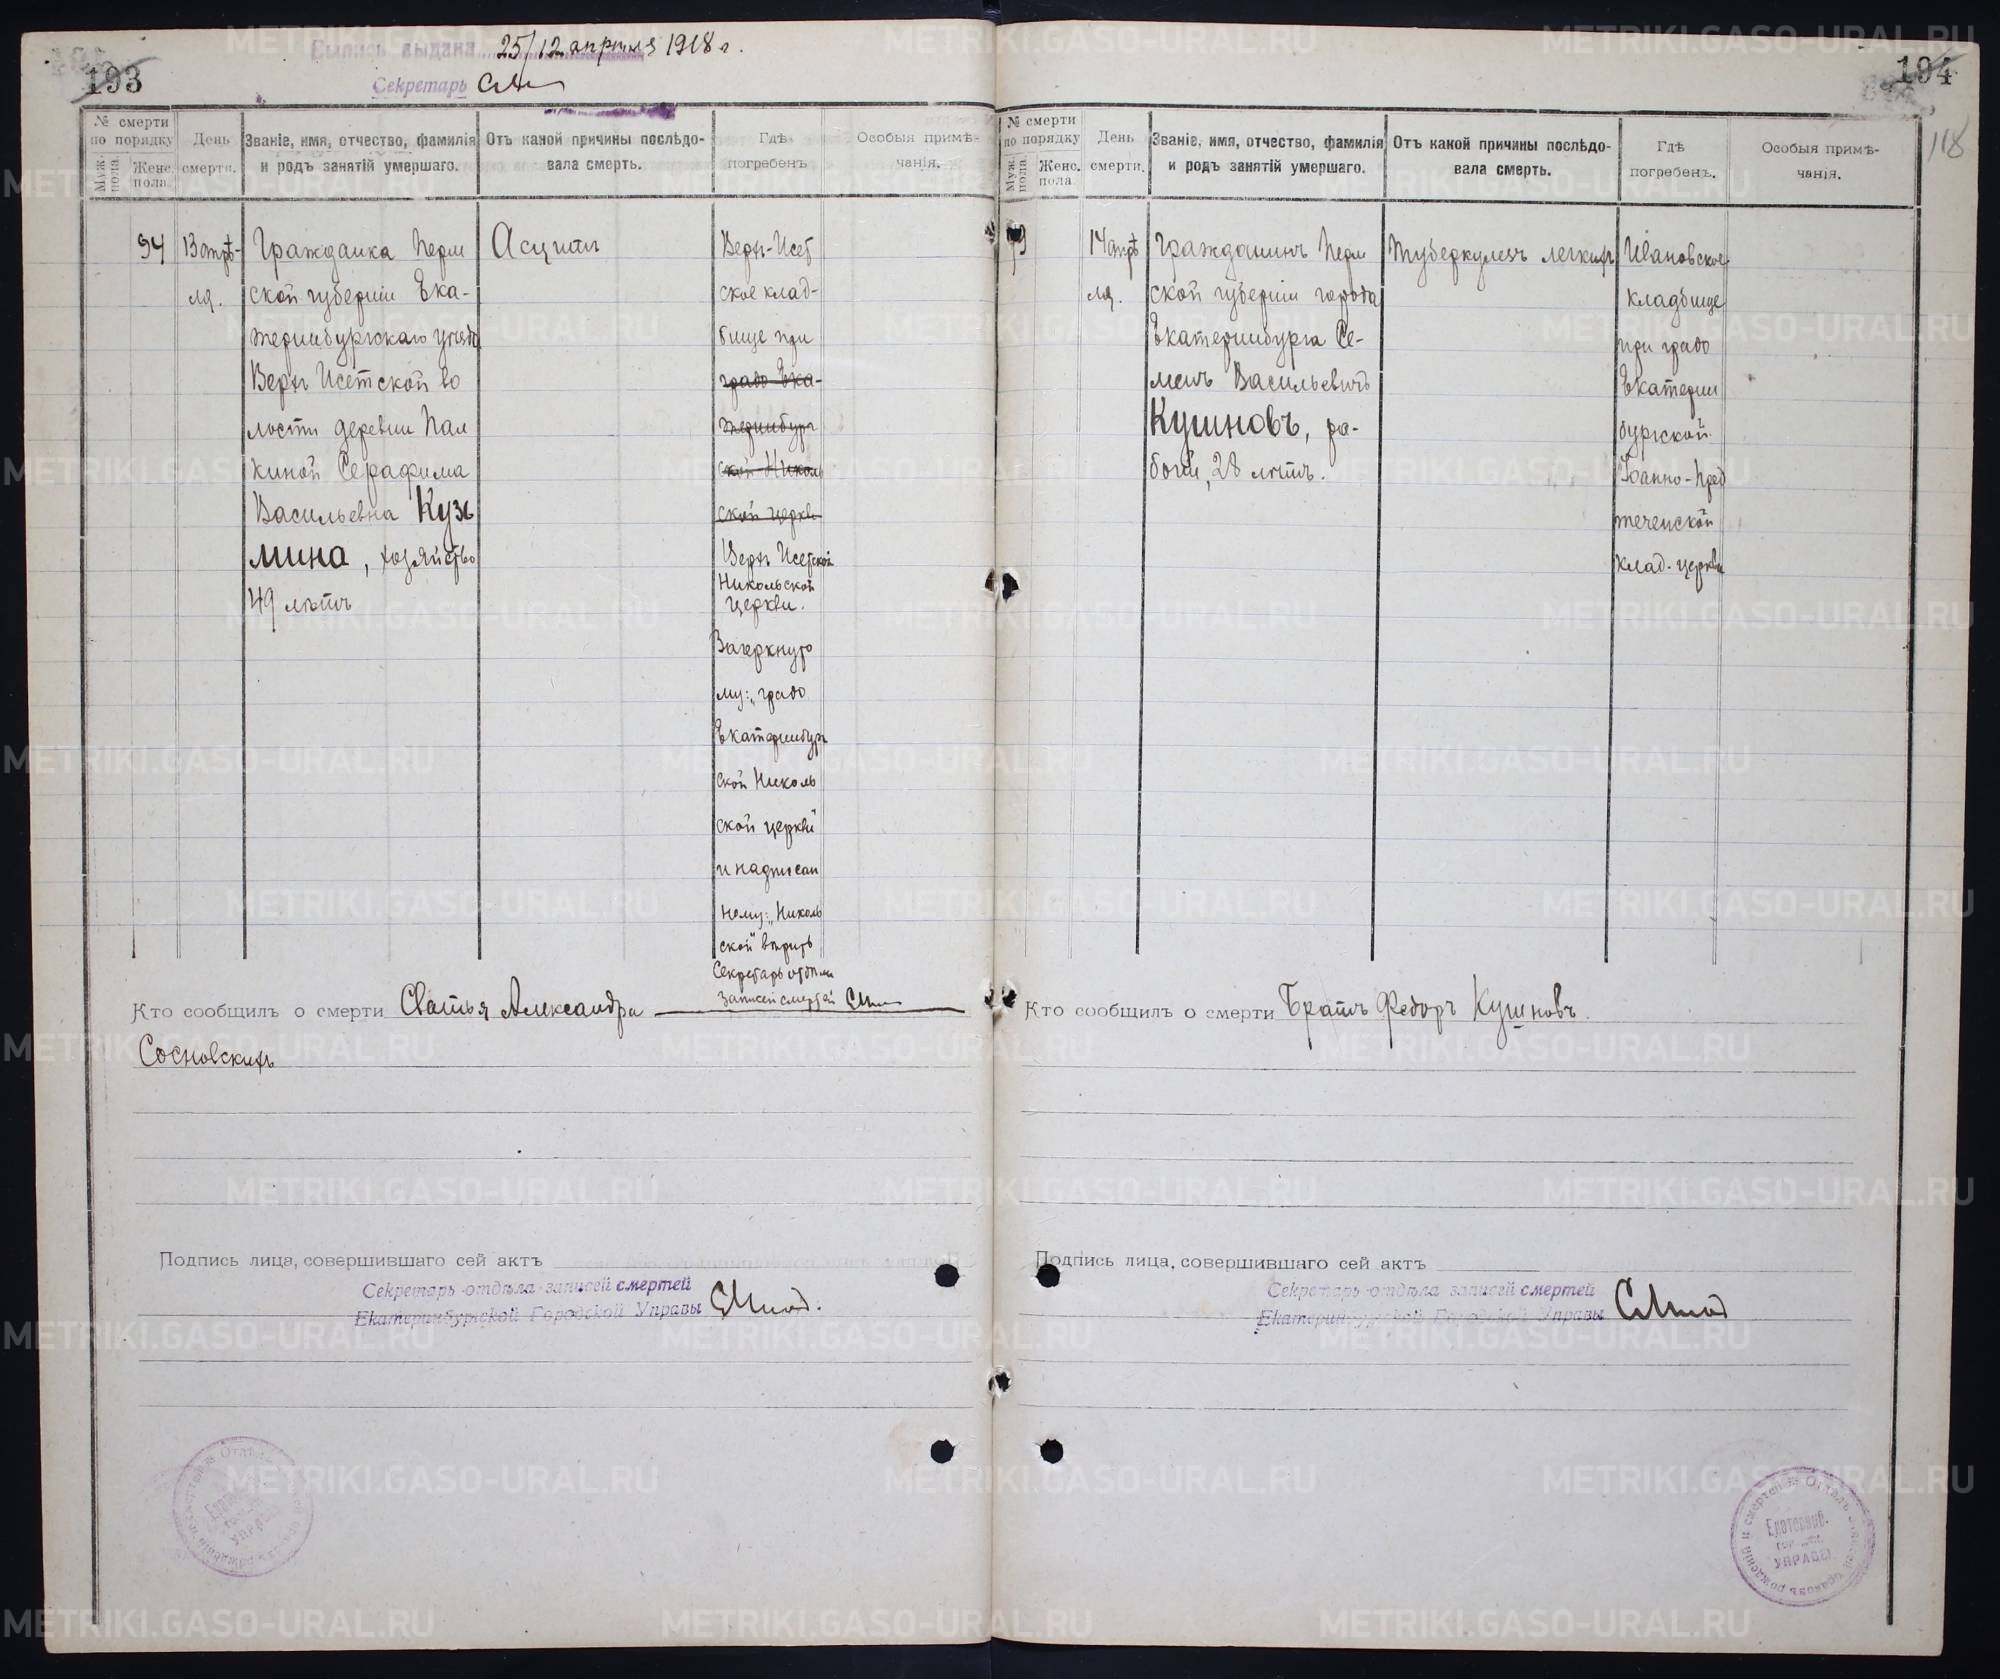 Выпись выдана 25/12 апрѣля 1918 г.
Секретарь
193
№ смерти по порядку
Муж. пола.
Женс. пола.
День смерти.
Званіе, имя, отчество, фамилія и родъ занятій умершаго.
Отъ какой причины послѣдовала смерть.
Гдѣ погребенъ
Особыя примѣчанія.
94
13 апрѣ-
ля.
Гражданка Перм
ской губерніи Ека-
теринбургскаго уѣзда
Верхъ Исетской во
лости деревни Пал
киной Серафима
Васильевна Кузь
мина, хозяйство
49 лѣтъ
Асцит
Верх-Исет
ское клад-
бище при
градо Ека-
теринбург
ской Николь
ской церкви
Верхъ Исетской
Никольской
церкви.
Зачеркнуто
му: „градо
Екатеринбург
ской Николь
ской церкви"
и надписан
ному: „Николь
ской" вѣрить
Секретарь отдѣла
записей смертей
Кто сообщилъ о смерти Сватья Александра
Сосновскихъ
Подпись лица, совершившаго сей актъ
Секретарь отдѣла записей смертей
Екатеринбургской Городской Управы
194
118
№ смерти по порядку
Муж. пола.
Женс. пола.
День смерти.
Званіе, имя, отчество, фамилія и родъ занятій умершаго.
Отъ какой причины послѣдовала смерть.
Гдѣ погребенъ.
Особыя примѣчанія.
14 апрѣ
ля.
Гражданинъ Перм
ской губерніи города
Екатеринбурга Се-
менъ Васильевичъ
Кушновъ, ра-
бочій, 28 лѣтъ.
Туберкулезъ легкихъ
Ивановское
кладбище
при градо
Екатерин
бургской
Іоанно-Пред
теченской
клад. церкви
Кто сообщилъ о смерти Братъ Федоръ Кушновъ.
Подпись лица, совершившаго сей актъ
Секретарь отдѣла записей смертей
Екатеринбургской Городской Управы
Екатеринб.
УПРАВЫ
METRIKI.GASO-URAL.RU